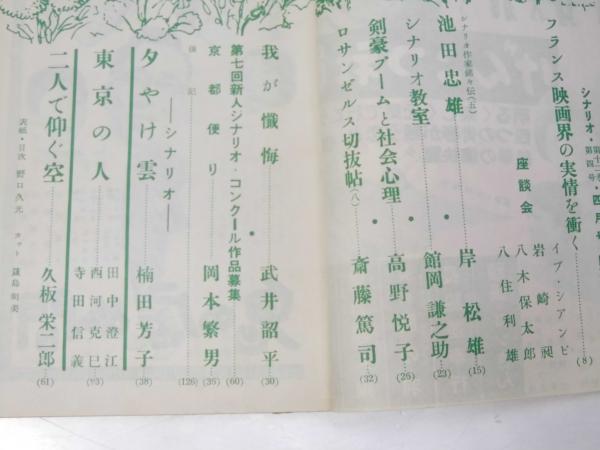 シナリオ・第十二巻第四号・四月号
フランス映画界の実情を衝く……(8)
座談会
イブ・シアンピ
岩崎昶
八木保太郎
八住利雄
シナリオ作家銘々伝(五)
池田忠雄……岸松雄(15)
シナリオ教室……館岡謙之助(23)
剣豪ブームと社会心理……高野悦子(26)
ロサンゼルス切抜帖(八)……斎藤篤司(32)
我が懺悔……武井韶平(30)
第七回新人シナリオ・コンクール作品募集……(60)
京都便り……岡本繁男(35)
後記……(126)
―シナリオ―
夕やけ雲……楠田芳子(38)
東京の人……田中澄江
西河克巳
寺田信義(93)
二人で仰ぐ空……久板栄二郎(61)
表紙・目次 野口久光 カット